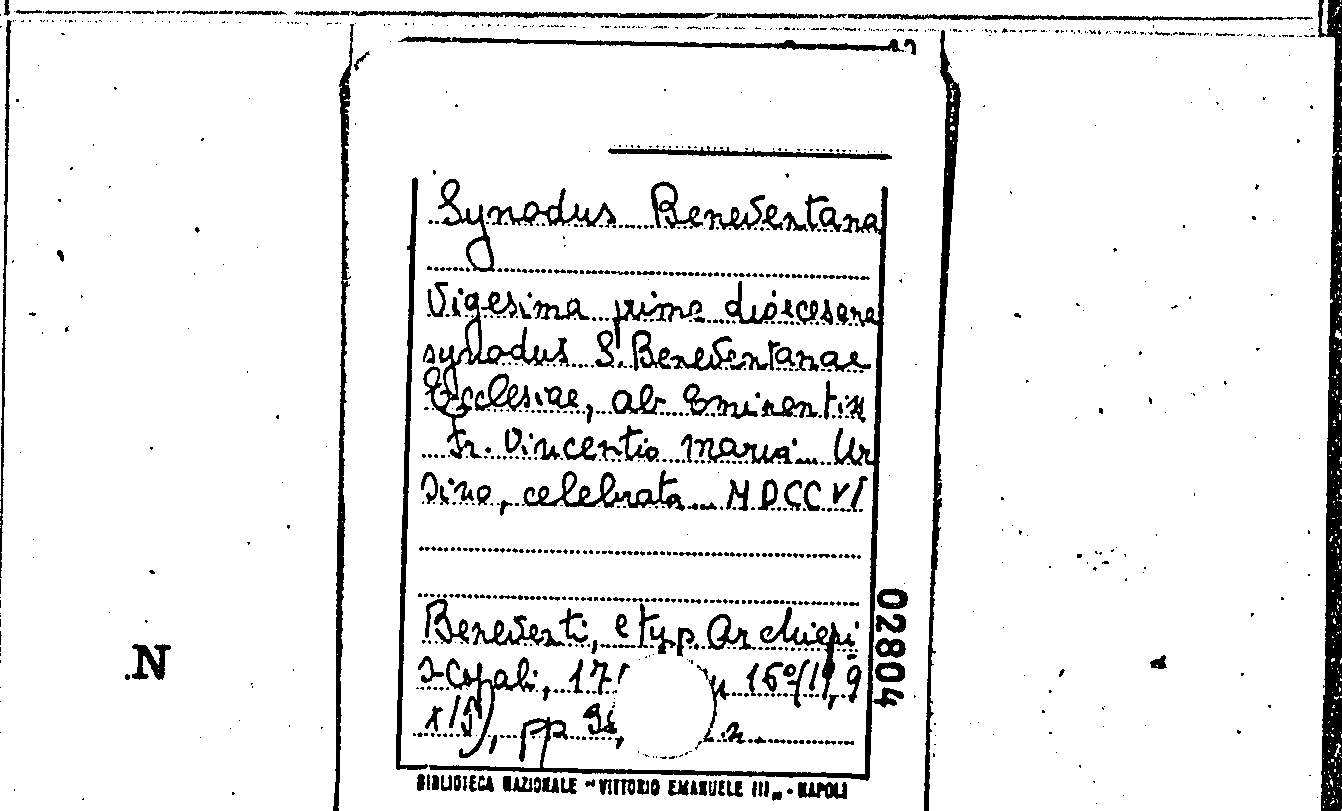 Synodus Beneventana
Vigesima prima diocesana
synodus S. Beneventanae
Ecclesiae, ab Eminentiss
Fr. Vincentio maria... Ur
sino, celebrata... MDCCVI
Beneventi, e typ. Archiepi
scopali, 17 16°(19,9
x15), pp
BIBLIOTECA NAZIONALE "VITTORIO EMANUELE III„ - NAPOLI
02804
.N